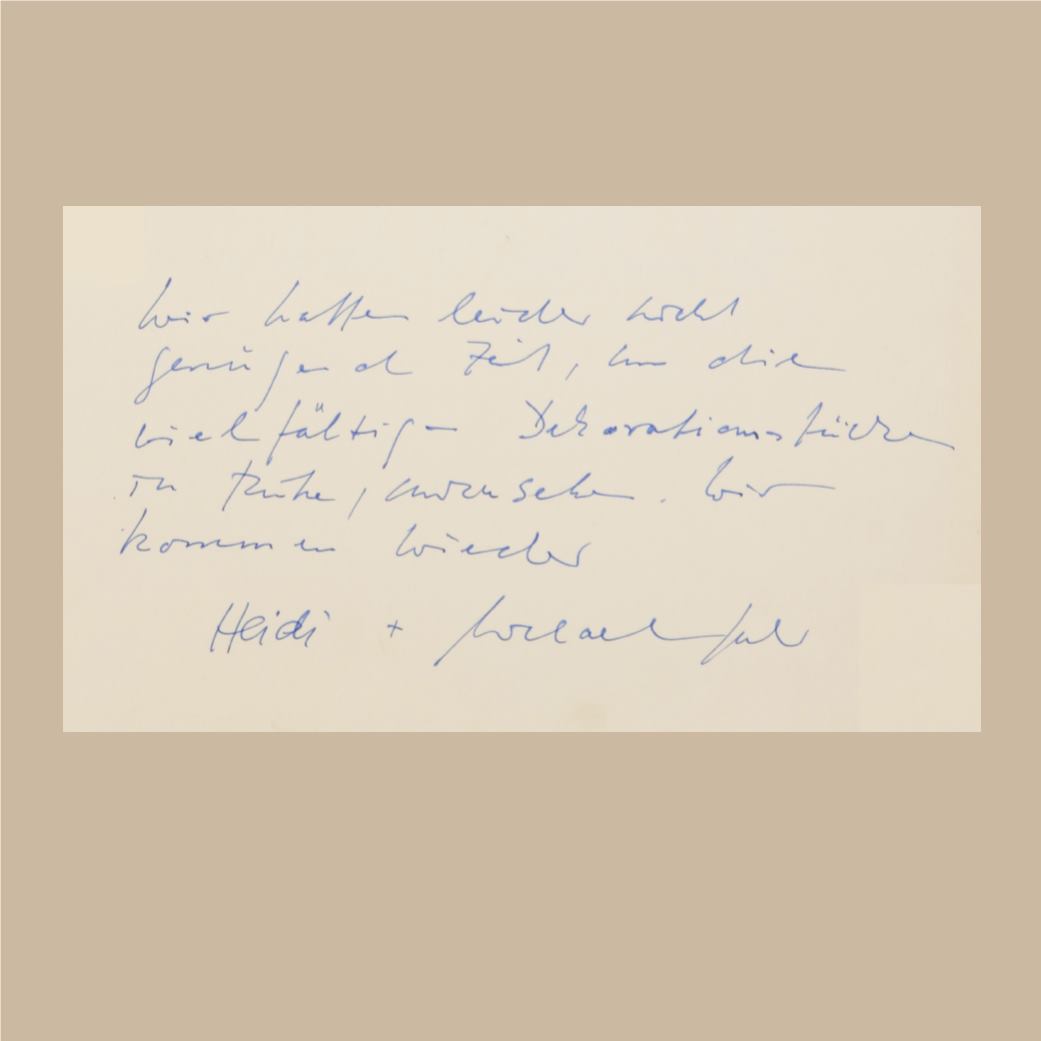 Wir hatten leider nicht
genügend Zeit, um die
vielfältigen Dekorationsstücke
in Ruhe, anzusehen. Wir
kommen wieder
Heidi +